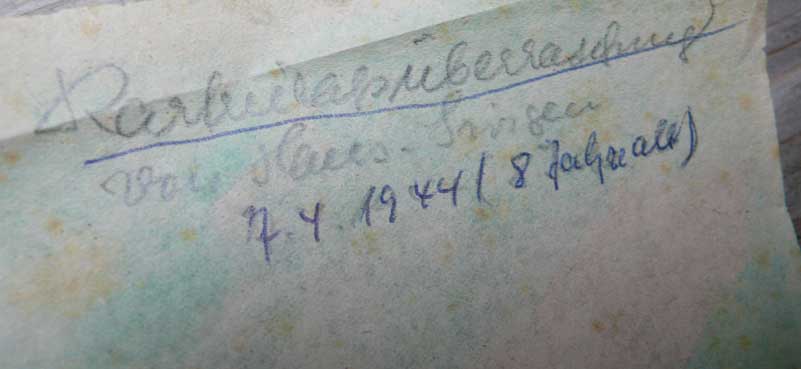 Karfreitagsüberraschung
von Hans-Jürgen
7.4.1944 (8 Jahre alt)